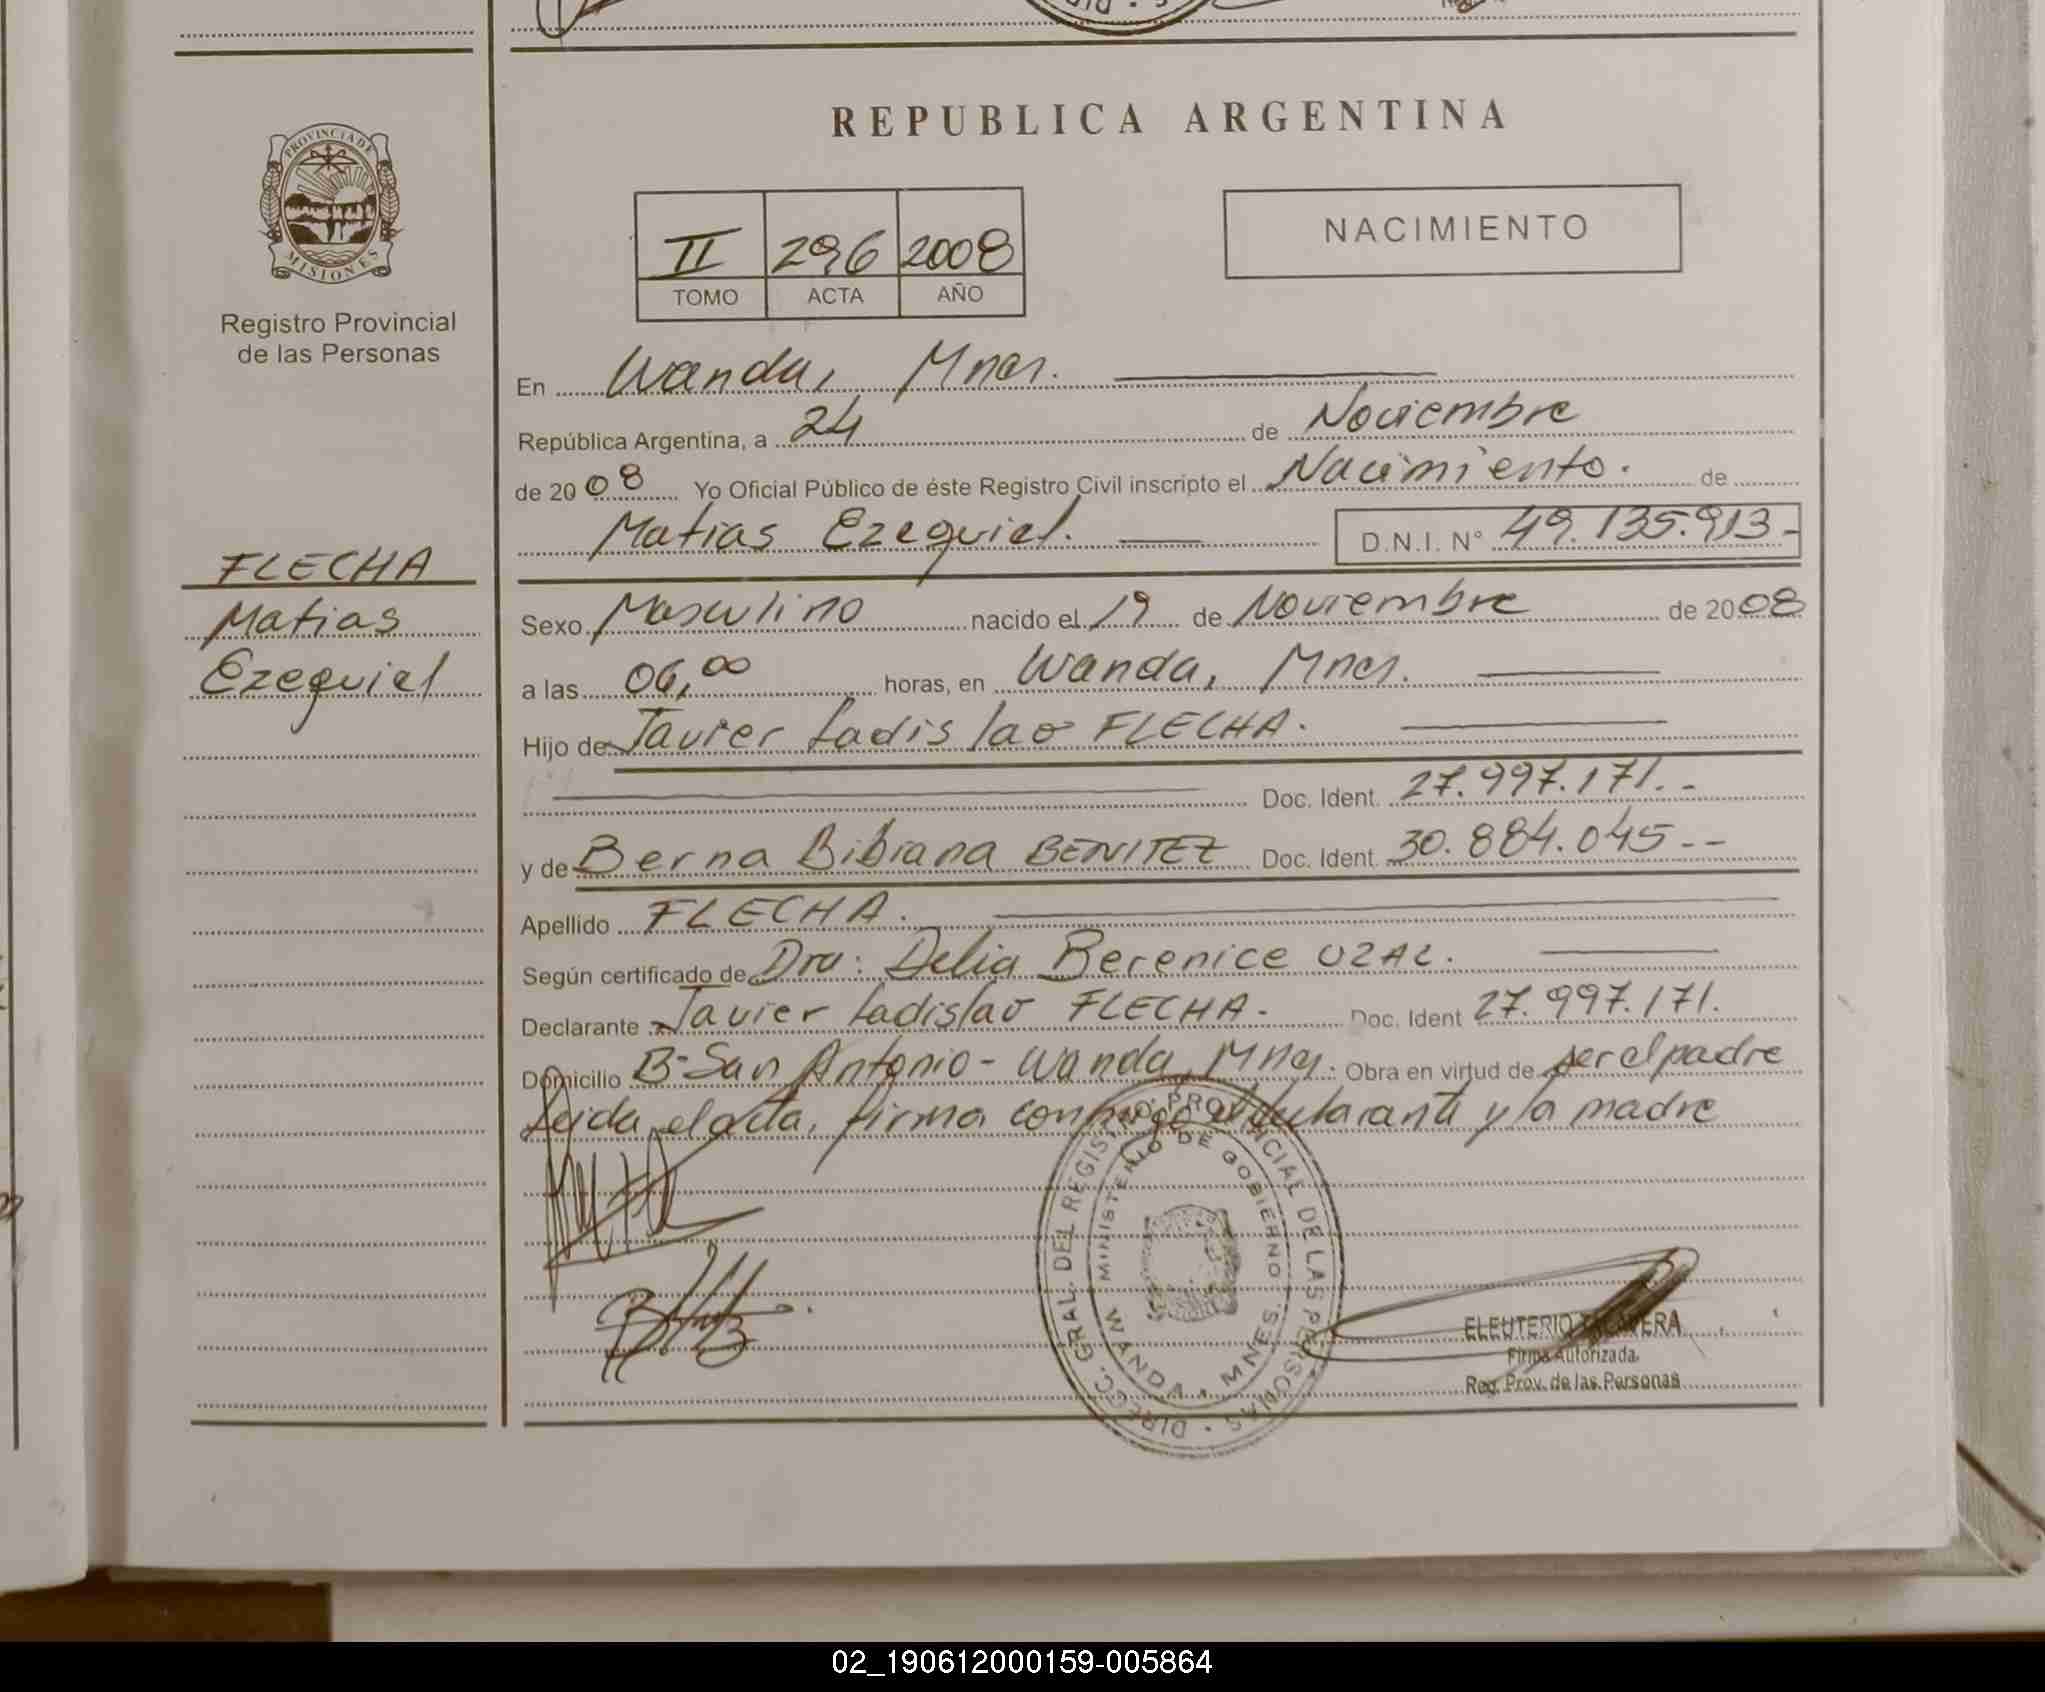 REPUBLICA ARGENTINA
PROVINCIA DE
MISIONES
Registro Provincial
de las Personas
II 296 2008
TOMO ACTA AÑO
NACIMIENTO
En Wanda, Mnes.
República Argentina, a 24 de Noviembre
de 2008 Yo Oficial Público de éste Registro Civil inscripto el Nacimiento. de
Matias Ezequiel. D.N.I. N° 49.135.913-
FLECHA
Matias
Ezequiel
Sexo Masculino nacido el 19 de Noviembre de 2008
a las 06,00 horas, en Wanda, Mnes.
Hijo de Javier Ladislao FLECHA.
Doc. Ident. 27.997.171.-
y de Berna Bibiana BENITEZ Doc. Ident. 30.884.045--
Apellido FLECHA.
Según certificado de Dra: Delia Berenice UZAL.
Declarante Javier Ladislao FLECHA- Doc. Ident 27.997.171.
Domicilio B- San Antonio- Wanda, Mnes. Obra en virtud de ser el padre
Leida el acta, firma conmigo el declarante y la madre
DIRECC. GRAL. DEL REGISTRO PROVINCIAL DE LAS PERSONAS
MINISTERIO DE GOBIERNO
WANDA - MNES.
ELEUTERIO TALAVERA
Firma Autorizada
Reg. Prov. de las Personas
02_190612000159-005864